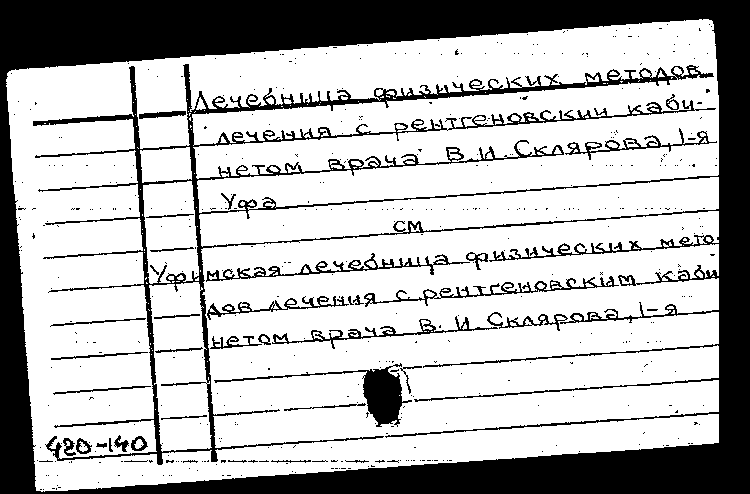 Лечебница физических методов
лечения с рентгеновским каби-
нетом врача В.И.Склярова, 1-я
Уфа
см
Уфимская лечебница физических мето-
дов лечения с рентгеновским каби
нетом врача В.И.Склярова, 1-я
420-140